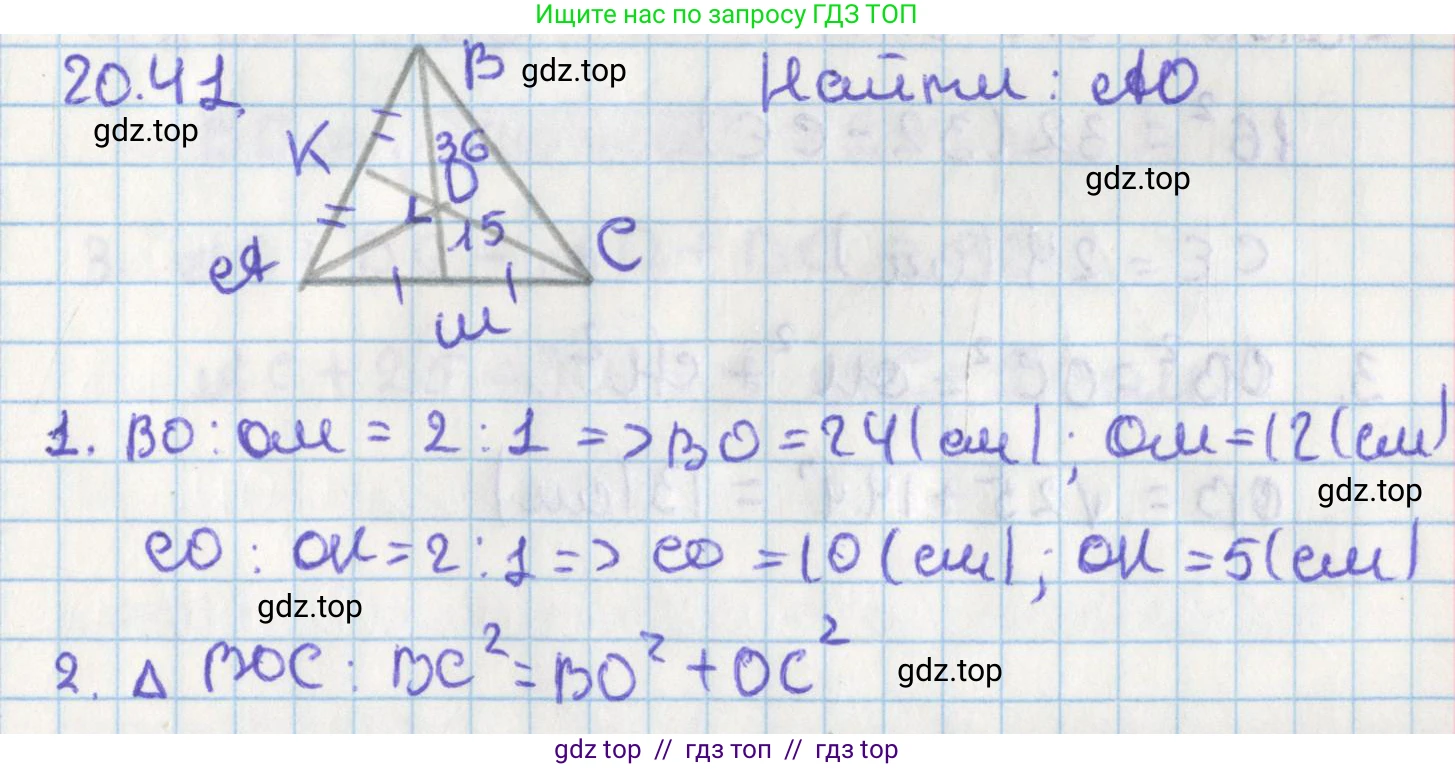 Ищите нас по запросу ГДЗ ТОП
20.41.
gdz.top
B
gdz.top
Найти: AO
K
36
O
gdz.top
15
C
A
M
1. BO : OM = 2 : 1 => BO = 24 (см); OM = 12 (см)
gdz.top
CO : OK = 2 : 1 => CO = 10 (см); OK = 5 (см)
gdz.top
2. Δ BOC : BC² = BO² + OC²
gdz.top
gdz top // гдз топ // гдз top